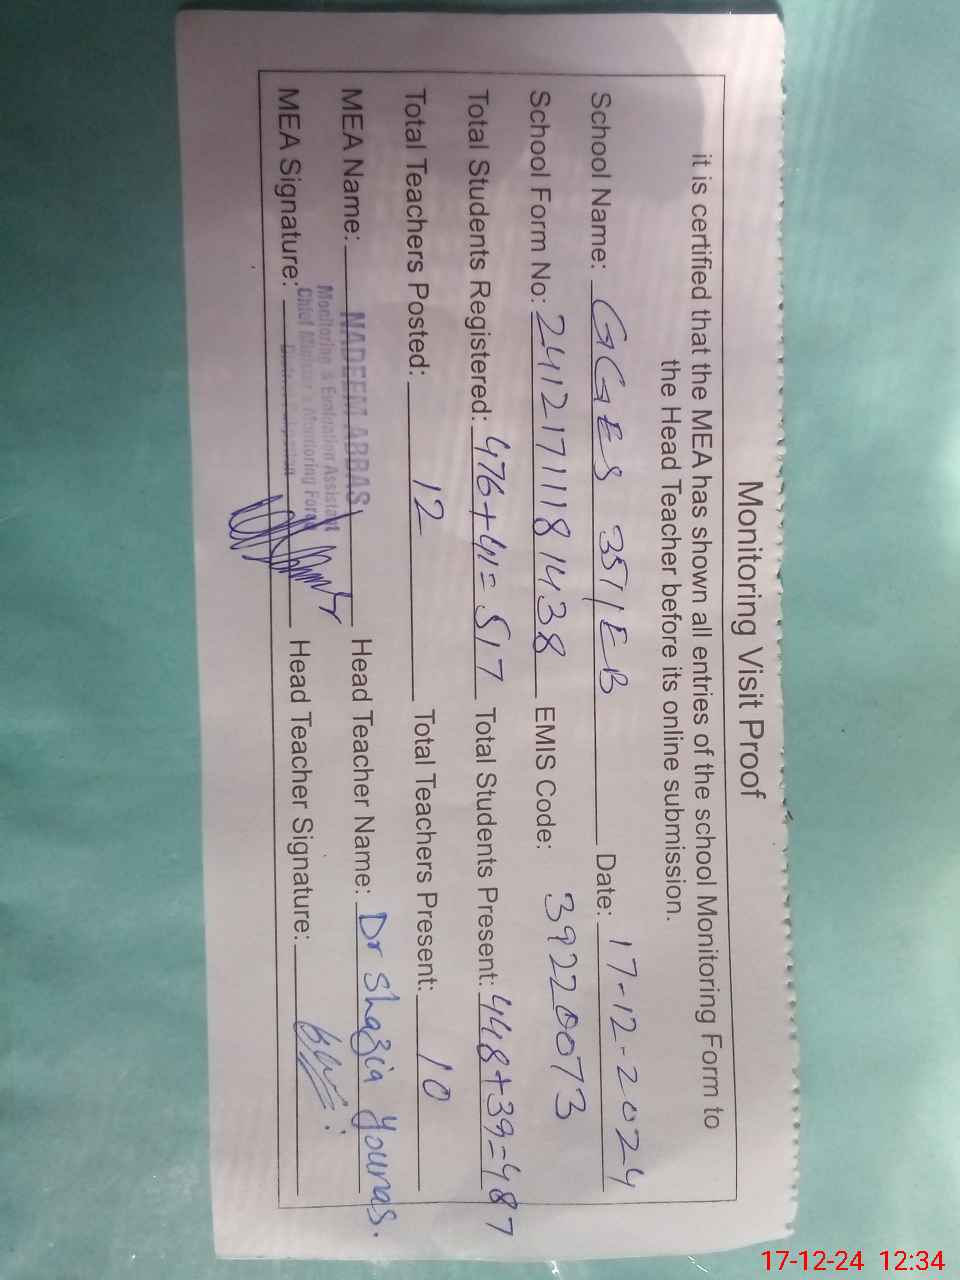 Monitoring Visit Proof
it is certified that the MEA has shown all entries of the school Monitoring Form to
the Head Teacher before its online submission.
School Name: GGES 351/EB Date: 17-12-2024
School Form No: 241217111181438 EMIS Code: 39220073
Total Students Registered: 476+41=517 Total Students Present: 448+39=487
Total Teachers Posted: 12 Total Teachers Present: 10
MEA Name: NADEEM ABBAS Head Teacher Name: Dr Shazia Younas.
Monitoring & Evaluation Assistant
Chief Minister's Monitoring Force
MEA Signature: Head Teacher Signature:
17-12-24 12:34